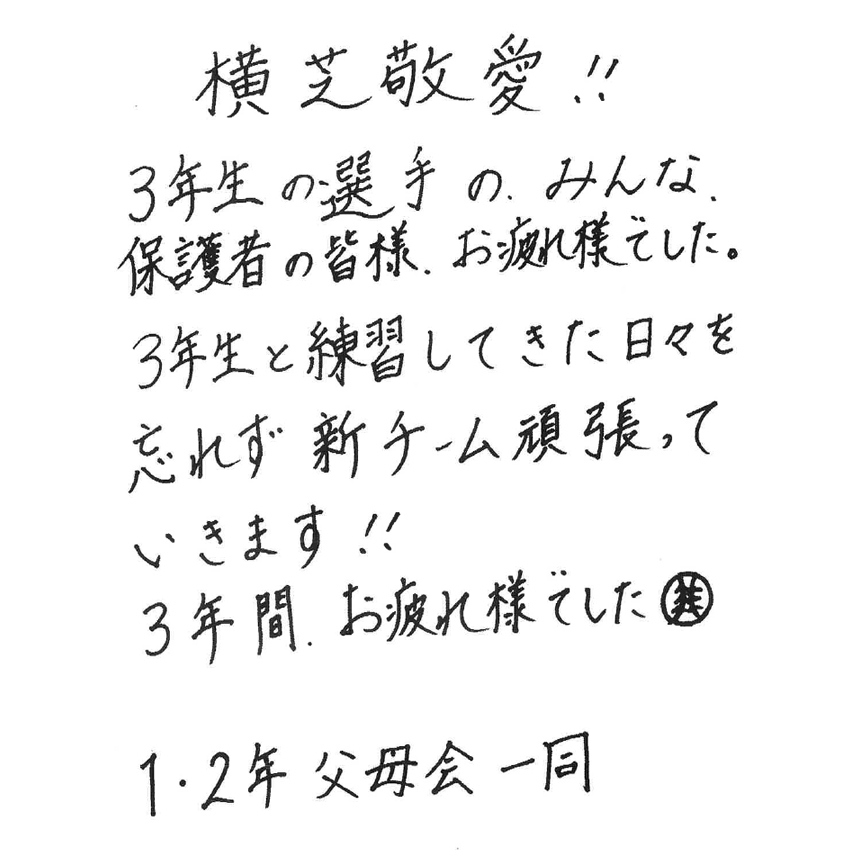 横芝敬愛!!
3年生の選手の、みんな、
保護者の皆様、お疲れ様でした。
3年生と練習してきた日々を
忘れず新チーム頑張って
いきます!!
3年間、お疲れ様でした
1・2年 父母会一同